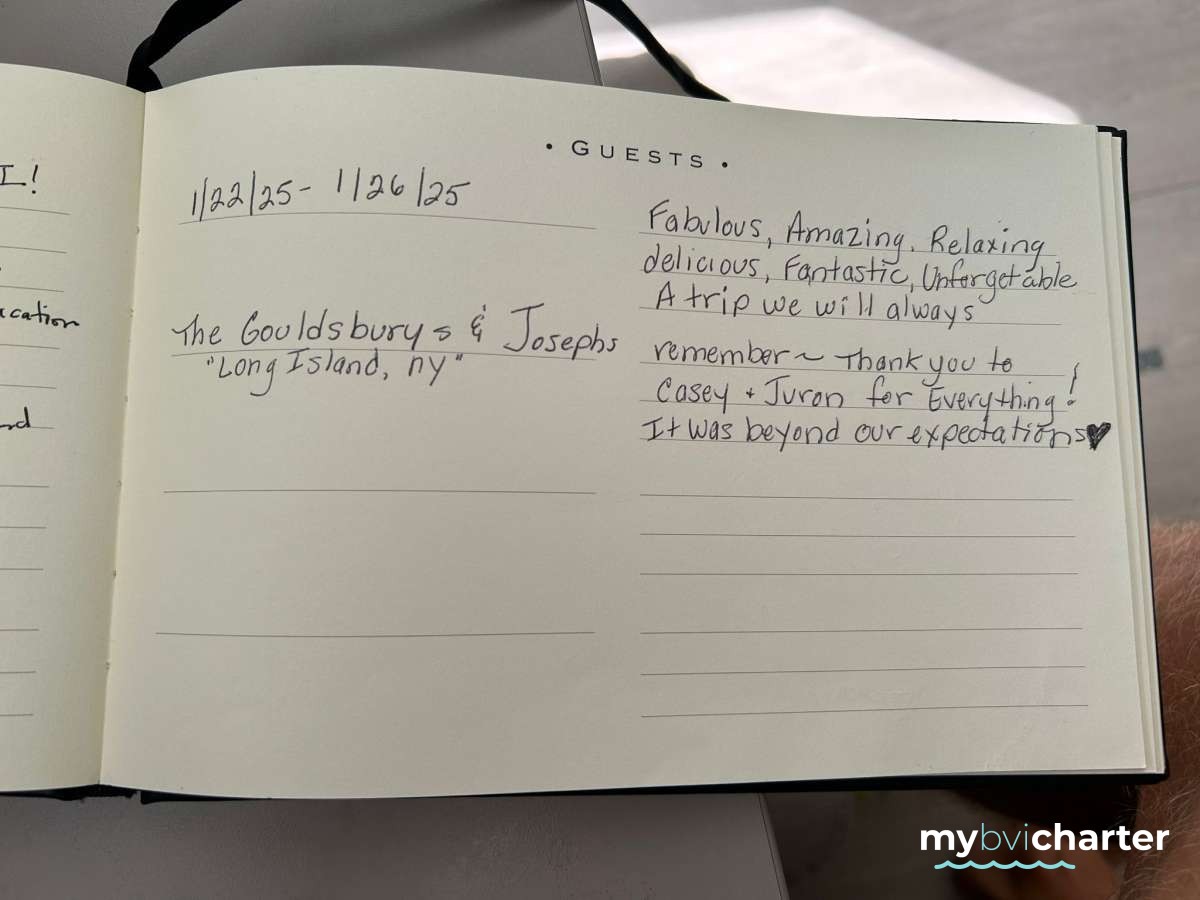 I!
acation
nd
• GUESTS •
1/22/25 - 1/26/25
The Gouldsburys & Josephs
"Long Island, ny"
Fabulous, Amazing. Relaxing
delicious, Fantastic, Unforgetable
A trip we will always
remember ~ Thank you to
Casey + Juron for Everything!
It was beyond our expectations♥
mybvicharter